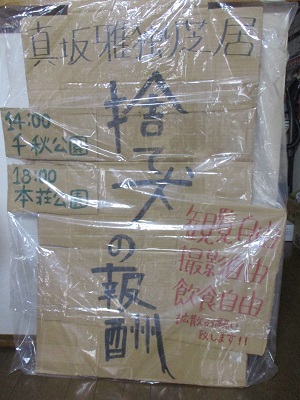 真坂雅街芝居
捨て犬の報酬
14:00
千秋公園
18:00
本荘公園
観覧自由
撮影自由
飲食自由
拡散お願い
致します!!